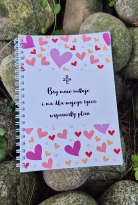 Bóg mnie miłuje
i ma dla mojego życia
wspaniały plan